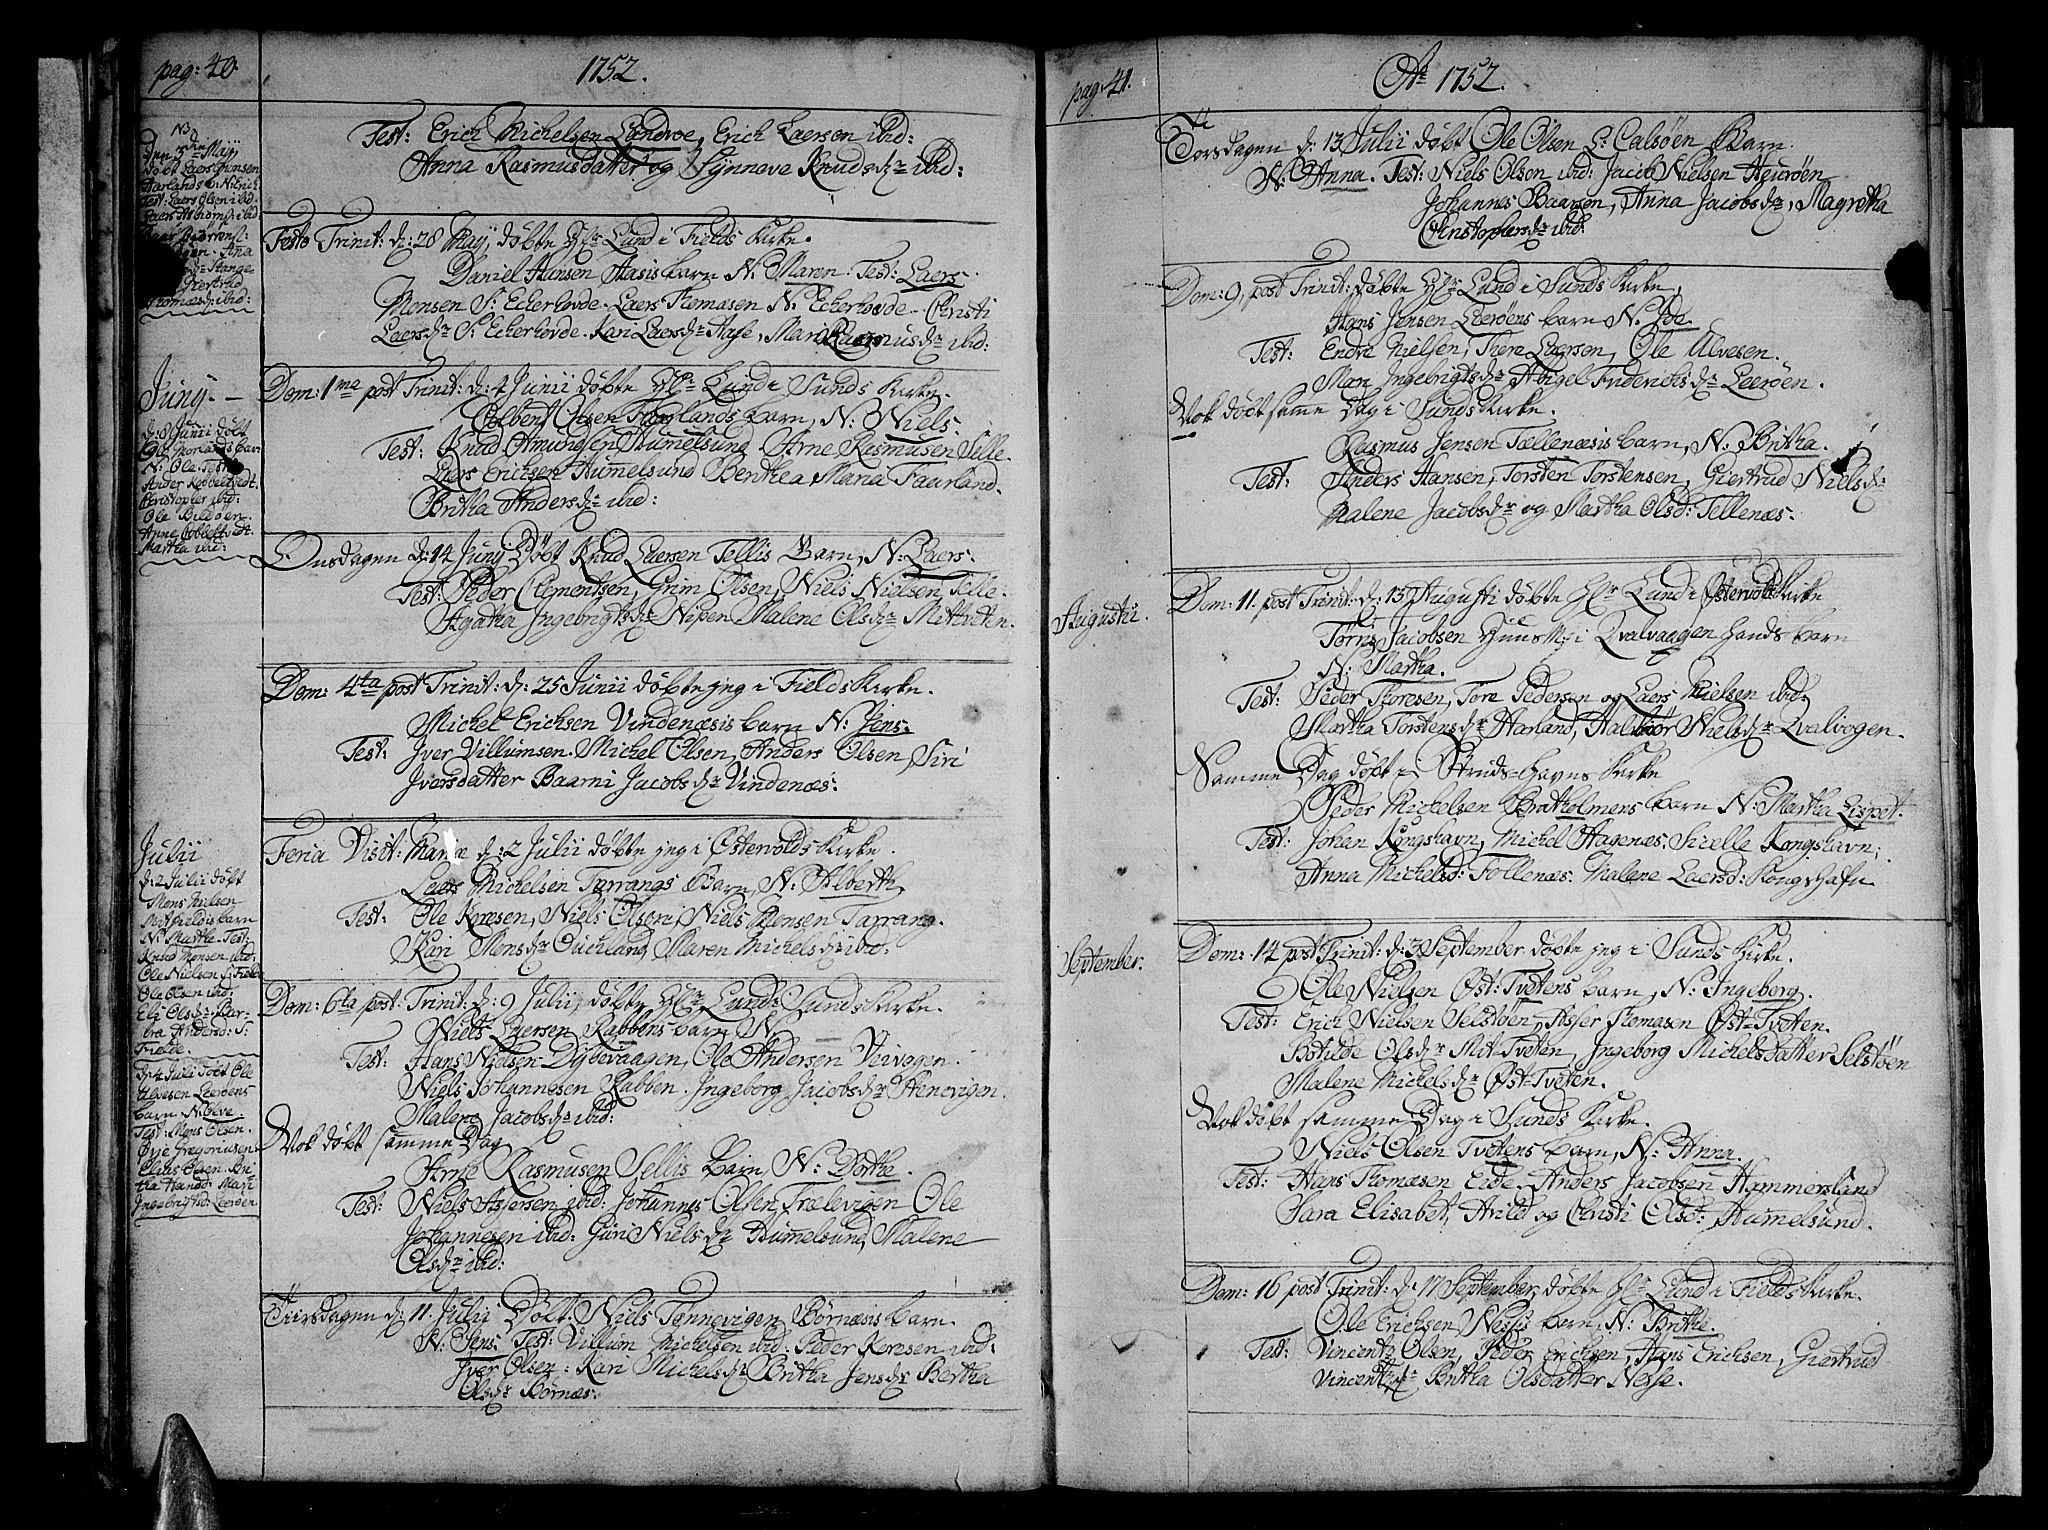 pag: 40.
1752.
Test: Erich Michelsen Landroe, Erich Laersen ibid:
Anna Rasmusdatter og Synneve Knudsdr ibid:
NB
Den 3die Maij
døbt Laers Johnsen
Haarlands b: N: Erich
Test: Laers Olsen ibid
Thomæsdr ibid:
Festo Trinit: d: 28 Maij døbte Hr Lund i Fields Kirke.
Daniel Hansen Hasis barn N: Maren. Test: Laers
Monsen S: Eckerhovde. Laers Thomasen N: Eckerhovde. Christi
Laersdr S: Eckerhovde. Kari Laersdr Hase, Mari Rasmusdr ibid:
Junij
d: 8 Junii døbt
N: Ole. Test:
Ander Kobbeltvedt.
Christopher ibid:
Ole Bildøen.
Anne Cobbeltvedt.
Martha ibid:
Dom: 1me post Trinit: d: 4 Junii døbte Hr Lund i Sunds Kirke.
Colben Olsen Toflands barn, N: Niels.
Test: Knud Amundsen Hummelsund, Arne Rasmusen Telle.
Laers Erichsen Hummelsund Benthea Maria Faurland.
Britha Andersdr ibid:
Onsdagen d: 14 Junij Døbt Knud Laersen Tellis Barn, N: Laers.
Test: Peder Clementsen, Grim Olsen, Niels Nielsen Telle.
Agatha Ingebrigtsdr Nipen Malene Olsdr Mittveten.
Dom: 4ta post Trinit: d: 25 Junii døbte jeg i Fields Kirke.
Michel Erichsen Vindenæsis barn N: Jens.
Test: Iver Villumsen. Michel Olsen, Anders Olsen, Siri
Iversdatter Baarni Jacobsdr Vindenæs:
Julii
d: 2 Julii døbt
Mons Nielsen
Mitfieldis barn
N: Marthe. Test:
Knud Monsen ibid:
Ole Nielsen S: Fielde
Ole Olsen ibid:
Eli Olsdr. Bar-
bra Andersd: S:
Fielde.
d: 4 Juli døbt Ole
Alvesen Leerøens
barn N: Olve.
Test: Mons Olsen.
Øvje Gregoriusen
Elias Olsen. Bri
tha Hansd: Mari
Ingebrigtsd: Leerøen.
Feria Visit: Mariæ d: 2 Julii døbte jeg i Østervolds Kirke.
Laers Michelsen Tarrangs Barn, N: Alberth,
Test: Ole Korsen, Niels Olsen, Niels Monsen Tarrang.
Kari Monsdr Ouchland, Maren Michelsdr ibid:
Dom: 6ta post: Trinit: d: 9 Julii, døbte Hr Lund i Sunds Kirke.
Niels Iversen Rabbens barn N:
Test: Hans Nielsen Dybevaagen, Ole Andersen Veivogen.
Niels Johannesen Rabben. Ingeborg Jacobsdr Henevigen.
Malene Jacobsdr ibid:
Nok døbt samme Dag
Arne Rasmusen Tellis barn, N: Dorthe.
Test: Niels Assersen ibid: Johannes Olsen Frælevigen Ole
Johannesen ibid: Guri Nielsdr Hummelsund, Malene
Olsdr ibid:
Tiirsdagen d: 11. Julii Døbt: Niels Tønnevigen Børnæsis barn.
N: Jens. Test: Villum Michelsen ibid: Peder Korsen ibid:
Iver Olsen: Kari Michelsdr Britha Jensdr Bertha
Olsdr Børnæs:
pag: 41.
Ao 1752.
Torsdagen d: 13 Julii døbt Ole Olsen L: Calsøen Barn.
N: Anna. Test: Niels Olsen ibid: Jacob Nielsen Heurøen
Johannes Baarsen, Anna Jacobsdr, Magretha
Christophersdr ibid:
Dom: 9, post Trinit: døbte Hr Lund i Sunds Kirke,
Hans Jensen Leerøens barn N: Ide.
Test: Endre Nielsen, There Laersen, Ole Alvesen.
Mari Ingebrigtsdr Abigel Friderichsdr Leerøen.
Nok døbt samme Dag i Sunds Kirke.
Rasmus Jensen Tællenæsis barn, N: Britha.
Test: Anders Hansen, Torsten Torstensen, Giertrud Nielsdr
Malene Jacobsdr og Martha Olsd: Tellenæs:
Augusti.
Dom: 11. post Trinit: d: 13 Augusti døbte Hr Lund i Østervolds Kirke
Tørris Jacobsen Huusm: i Qvalvaagen hands barn
N: Martha.
Test: Peder Thoresen, Tore Pedersen og Laers Nielsen ibid:
Martha Torstensdr Harland, Halvoor Nielsdr Qvalvogen.
Samme Dag døbt i Struds-havns Kirke
Peder Michelsen Bratholmens barn N: Martha Lispet.
Test: Johan Kongshavn, Michel Hagenæs. Sicelle Kongshavn;
Anna Michelsd: Follenæs. Malene Laersd: Kongshafn
September.
Dom: 14 post Trinit: d: 3 September døbte jeg i Sunds Kirke.
Ole Nielsen Øst: Tvetens barn, N: Ingeborg.
Test: Erich Nielsen Selstøen, Asser Thomasen Øst-Tveten.
Botilde Olsdr Mit-Tveten, Ingeborg Michelsdatter Selstøen
Malene Michelsdr Øst-Tveten.
Nok døbt samme Dag i Sunds Kirke.
Niels Olsen Tvetens barn, N: Anna.
Test: Hans Thomæsen Eide. Anders Jacobsen Hammersland
Sara Elisabet, Arild og Christi Olsd: Hummelsund.
Dom: 16 post Trinit: d: 17 September, døbte Hr Lund i Fields Kirke.
Ole Erichsen Nessis barn, N: Brithe.
Test: Vincentz Olsen, Peder Erichsen, Hans Erichsen, Giertrud
Vincentzdr Britha Olsdatter Nesse.